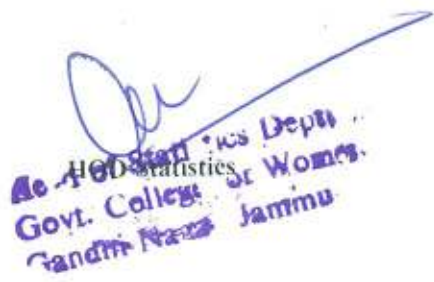 HOD Statistics
Statistics Deptt
Govt. College Women.
Gandhi Nagar Jammu